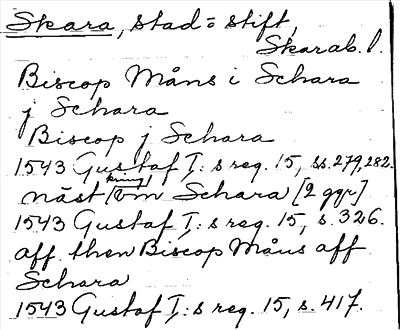 Skara, stad= stift,
Skarab. l.
Biscop Måns i Schara
j Schara
Biscop j Schara
1543 Gustaf I:s reg. 15, ss. 279, 282.
näst kring om Schara [2 ggr]
1543 Gustaf I:s reg. 15, s. 326.
aff then Biscop Måns aff
Schara
1543 Gustaf I:s reg. 15, s. 417.